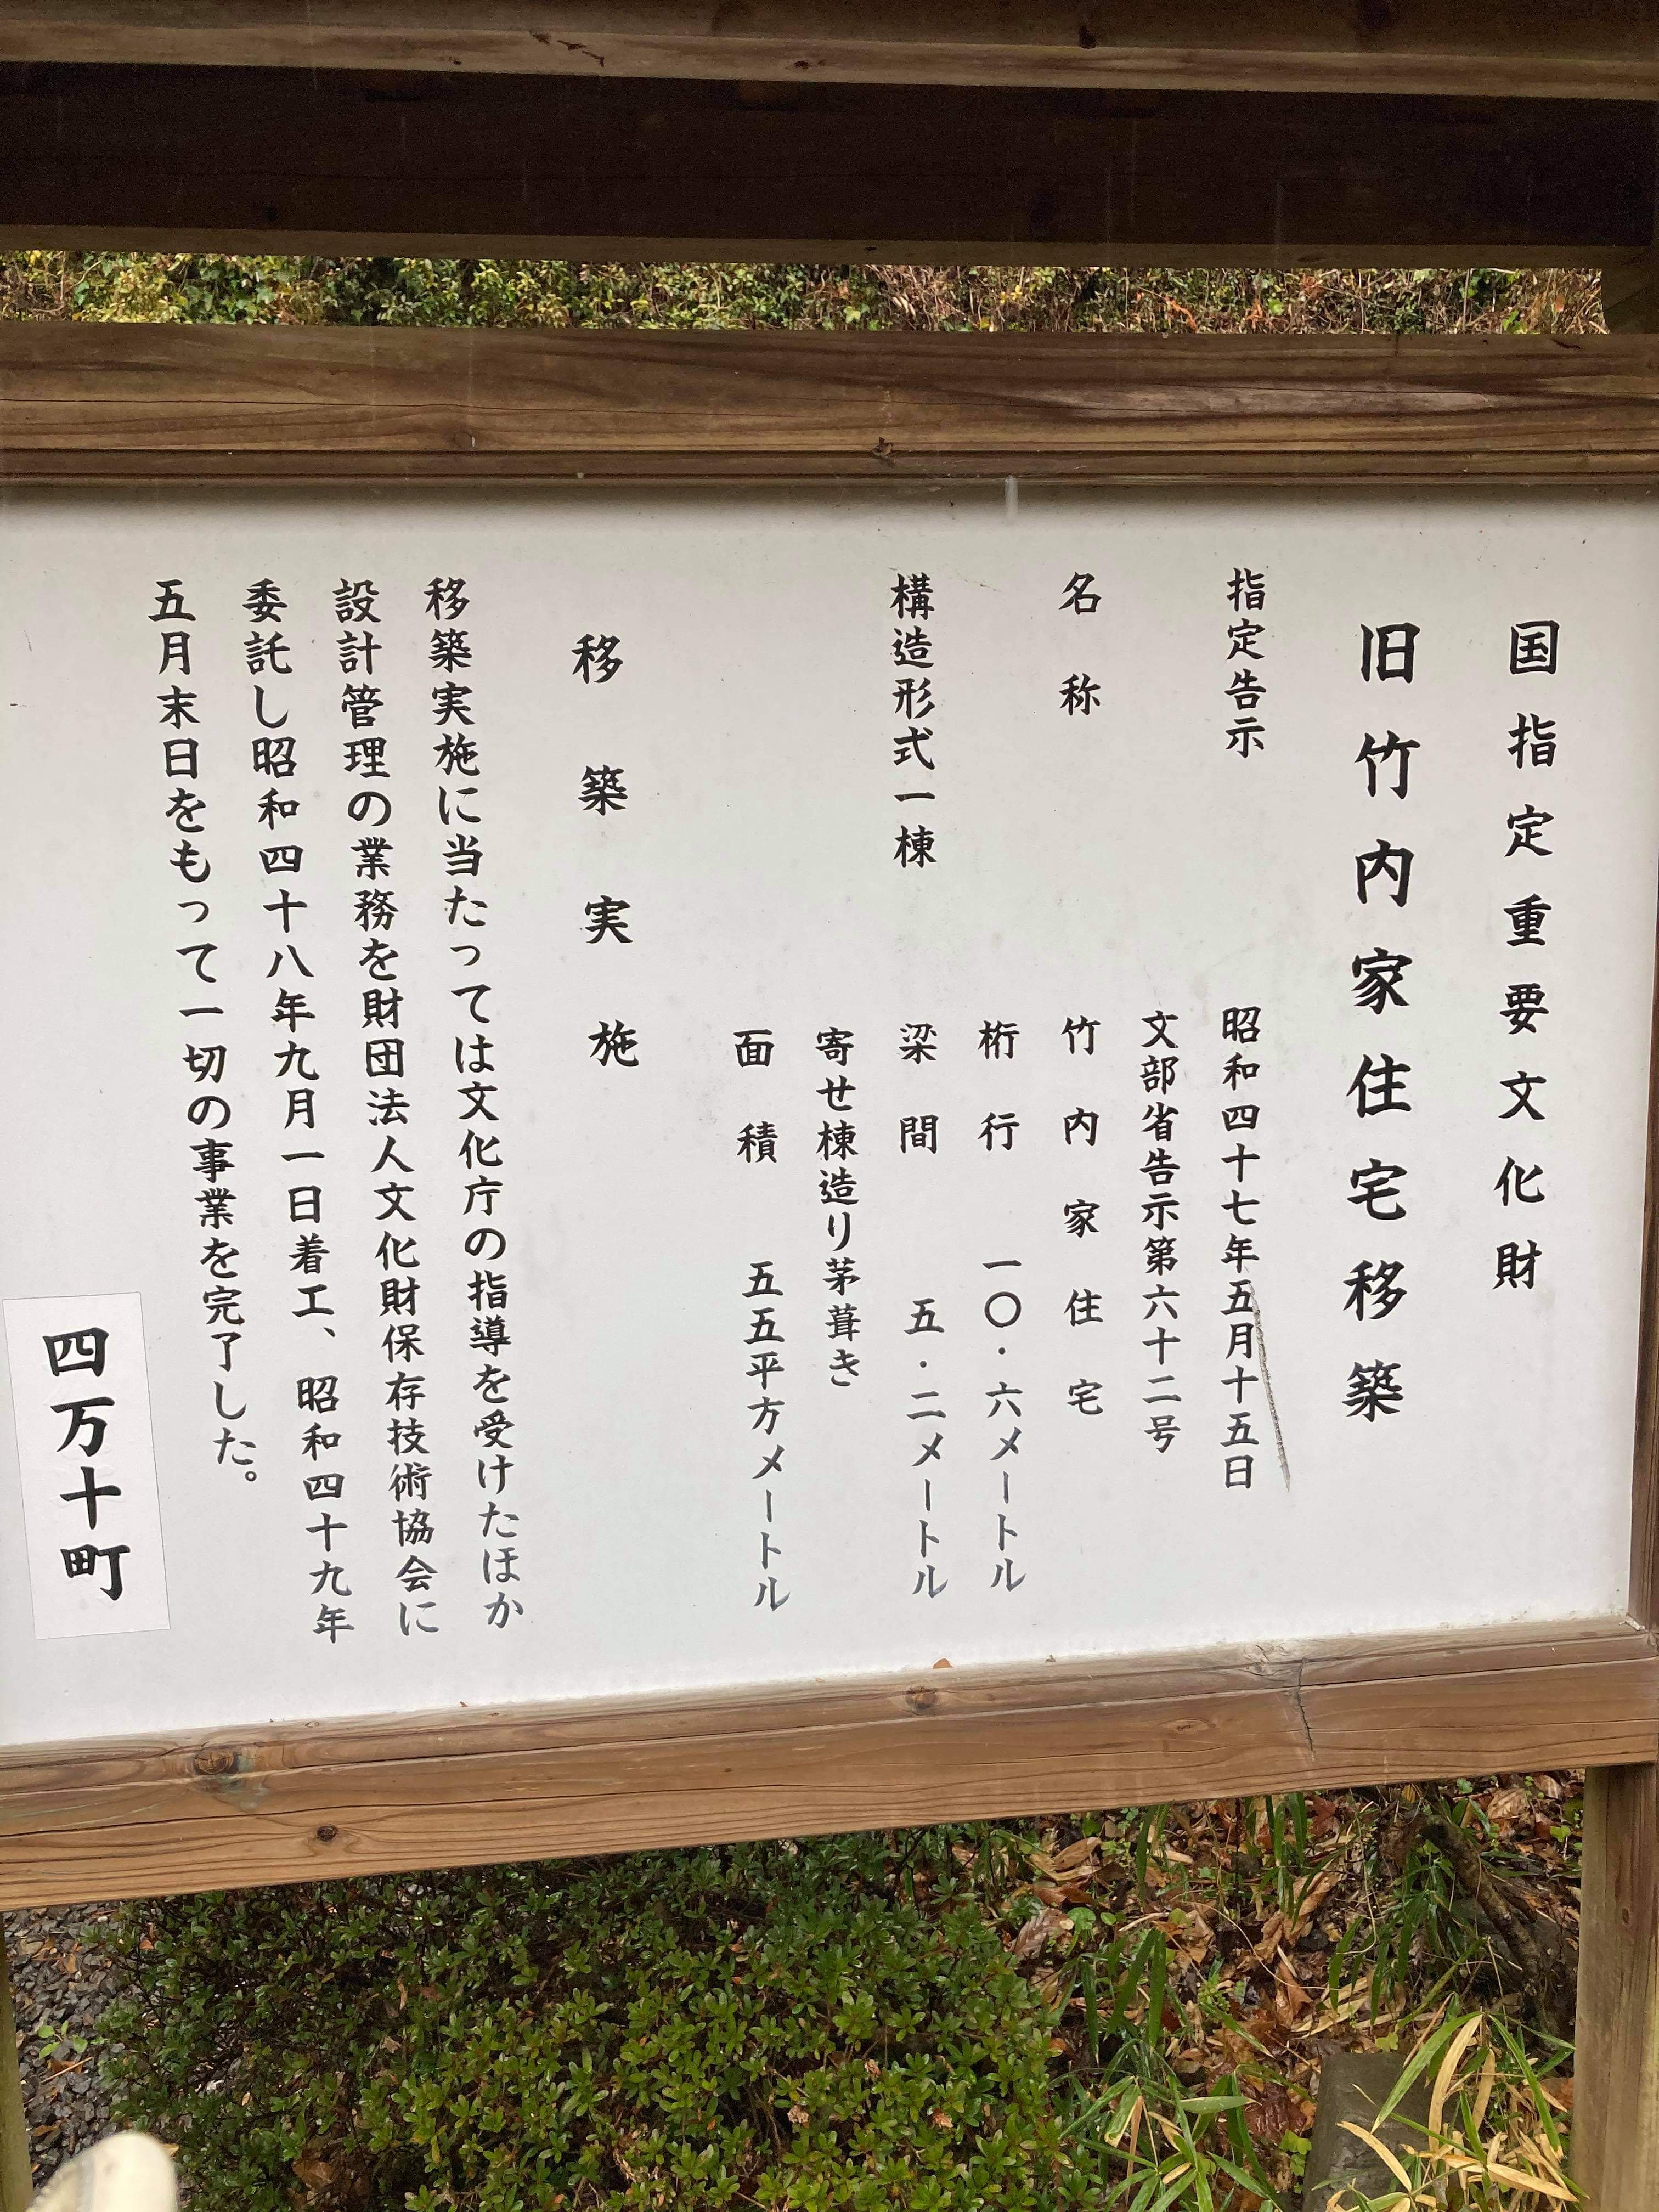 国指定重要文化財
旧竹内家住宅移築
指定告示　昭和四十七年五月十五日
文部省告示第六十二号
名称　竹内家住宅
桁行　一〇・六メートル
構造形式一棟　梁間　五・二メートル
寄せ棟造り茅葺き
面積　五五平方メートル
移築実施
移築実施に当たっては文化庁の指導を受けたほか
設計管理の業務を財団法人文化財保存技術協会に
委託し昭和四十八年九月一日着工、昭和四十九年
五月末日をもって一切の事業を完了した。
四万十町